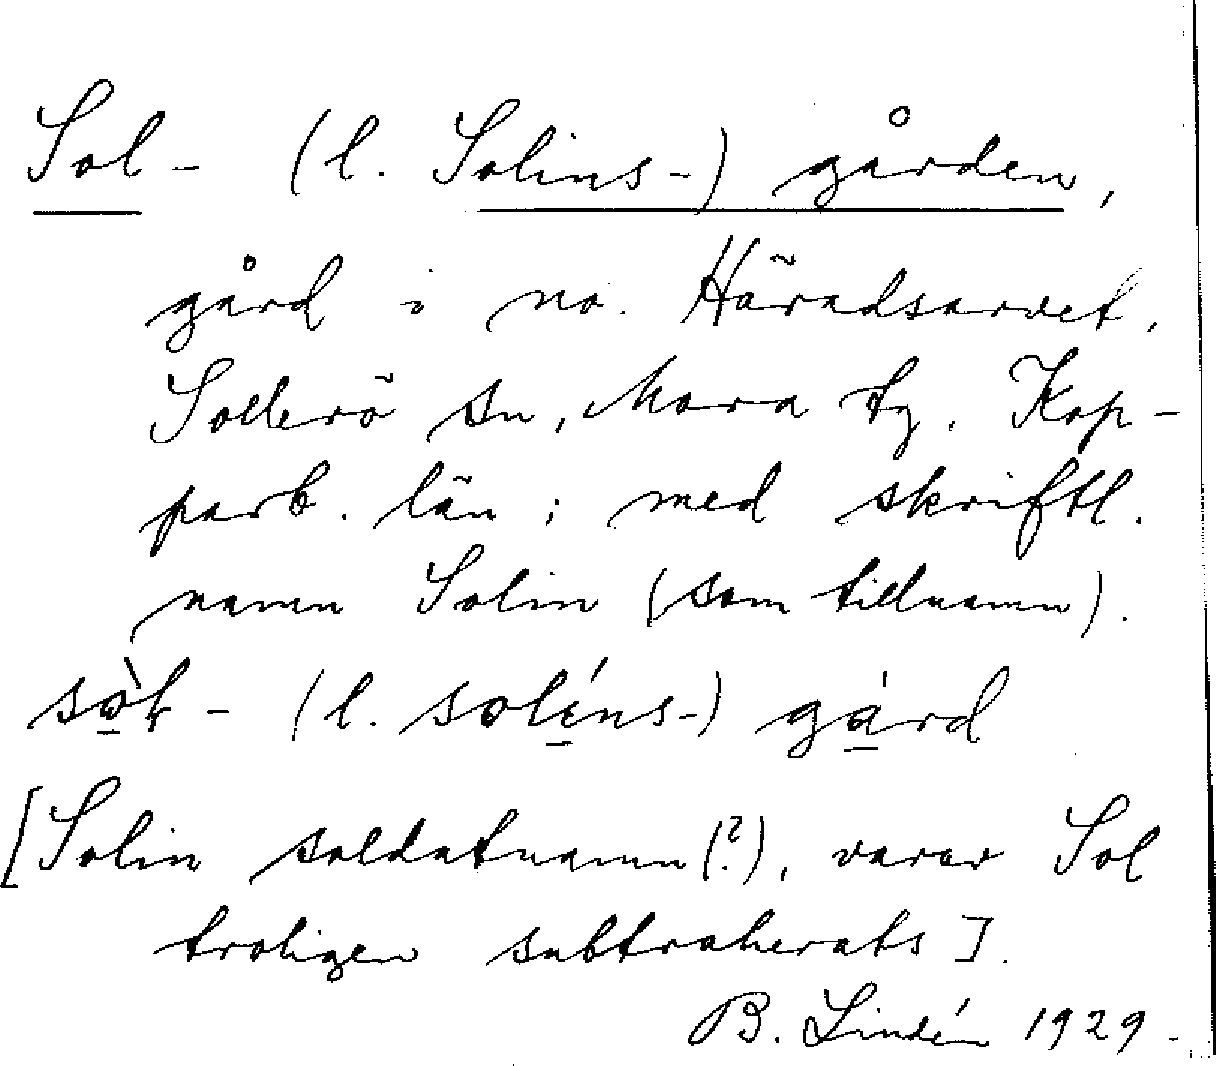 Sol- (l. Solins-) gården,
gård i no. Häradsarvet,
Sollerö sn, Mora tg, Kop-
parb. län; med skriftl.
namn Solin (som tillnamn).
sò̱ł- (l. solí̱ns-) gá̱rd
[Solin soldatnamn (?), varav Sol
troligen subtraherats].
B. Lindén 1929.